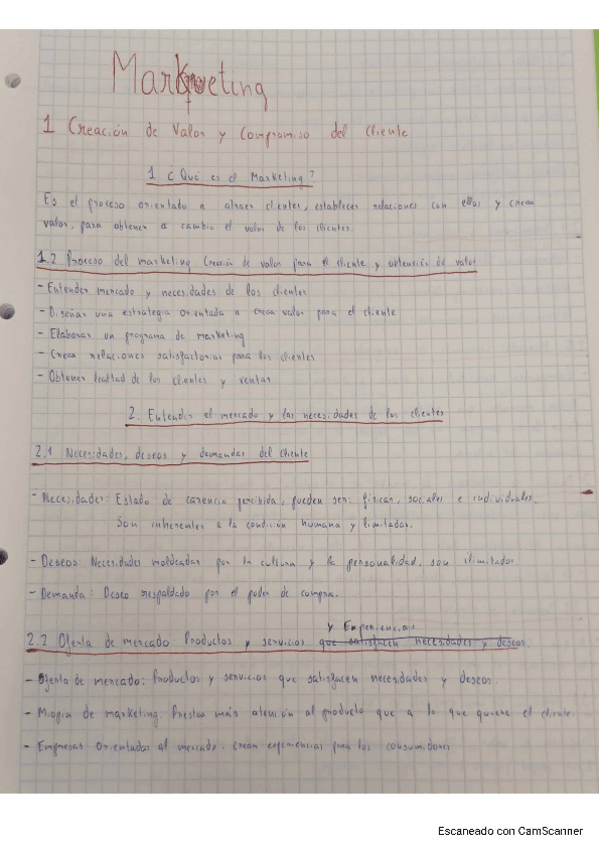 Marketing
1 Creación de Valor y Compromiso del Cliente
1 ¿Qué es el Marketing?
Es el proceso orientado a atraer clientes, establecer relaciones con ellos y crear
valor, para obtener a cambio el valor de los clientes.
1.2 Proceso del marketing Creación de valor para el cliente y obtención de valor
- Entender mercado y necesidades de los clientes
- Diseñar una estrategia orientada a crear valor para el cliente
- Elaborar un programa de marketing
- Crear relaciones satisfactorias para los clientes
- Obtener lealtad de los clientes y ventas
2. Entender el mercado y las necesidades de los clientes
2.1 Necesidades, deseos y demandas del cliente
- Necesidades: Estado de carencia percibida, pueden ser: físicas, sociales e individuales.
Son inherentes a la condición humana y limitadas.
- Deseos: Necesidades moldeadas por la cultura y la personalidad, son ilimitados
- Demanda: Deseo respaldado por el poder de compra.
y Experiencias
2.2 Oferta de mercado Productos y servicios que satisfacen necesidades y deseos.
- Oferta de mercado: Productos y servicios que satisfacen necesidades y deseos.
- Miopía de marketing: Prestar más atención al producto que a lo que quiere el cliente.
- Empresas orientadas al mercado: crean experiencias para los consumidores
Escaneado con CamScanner